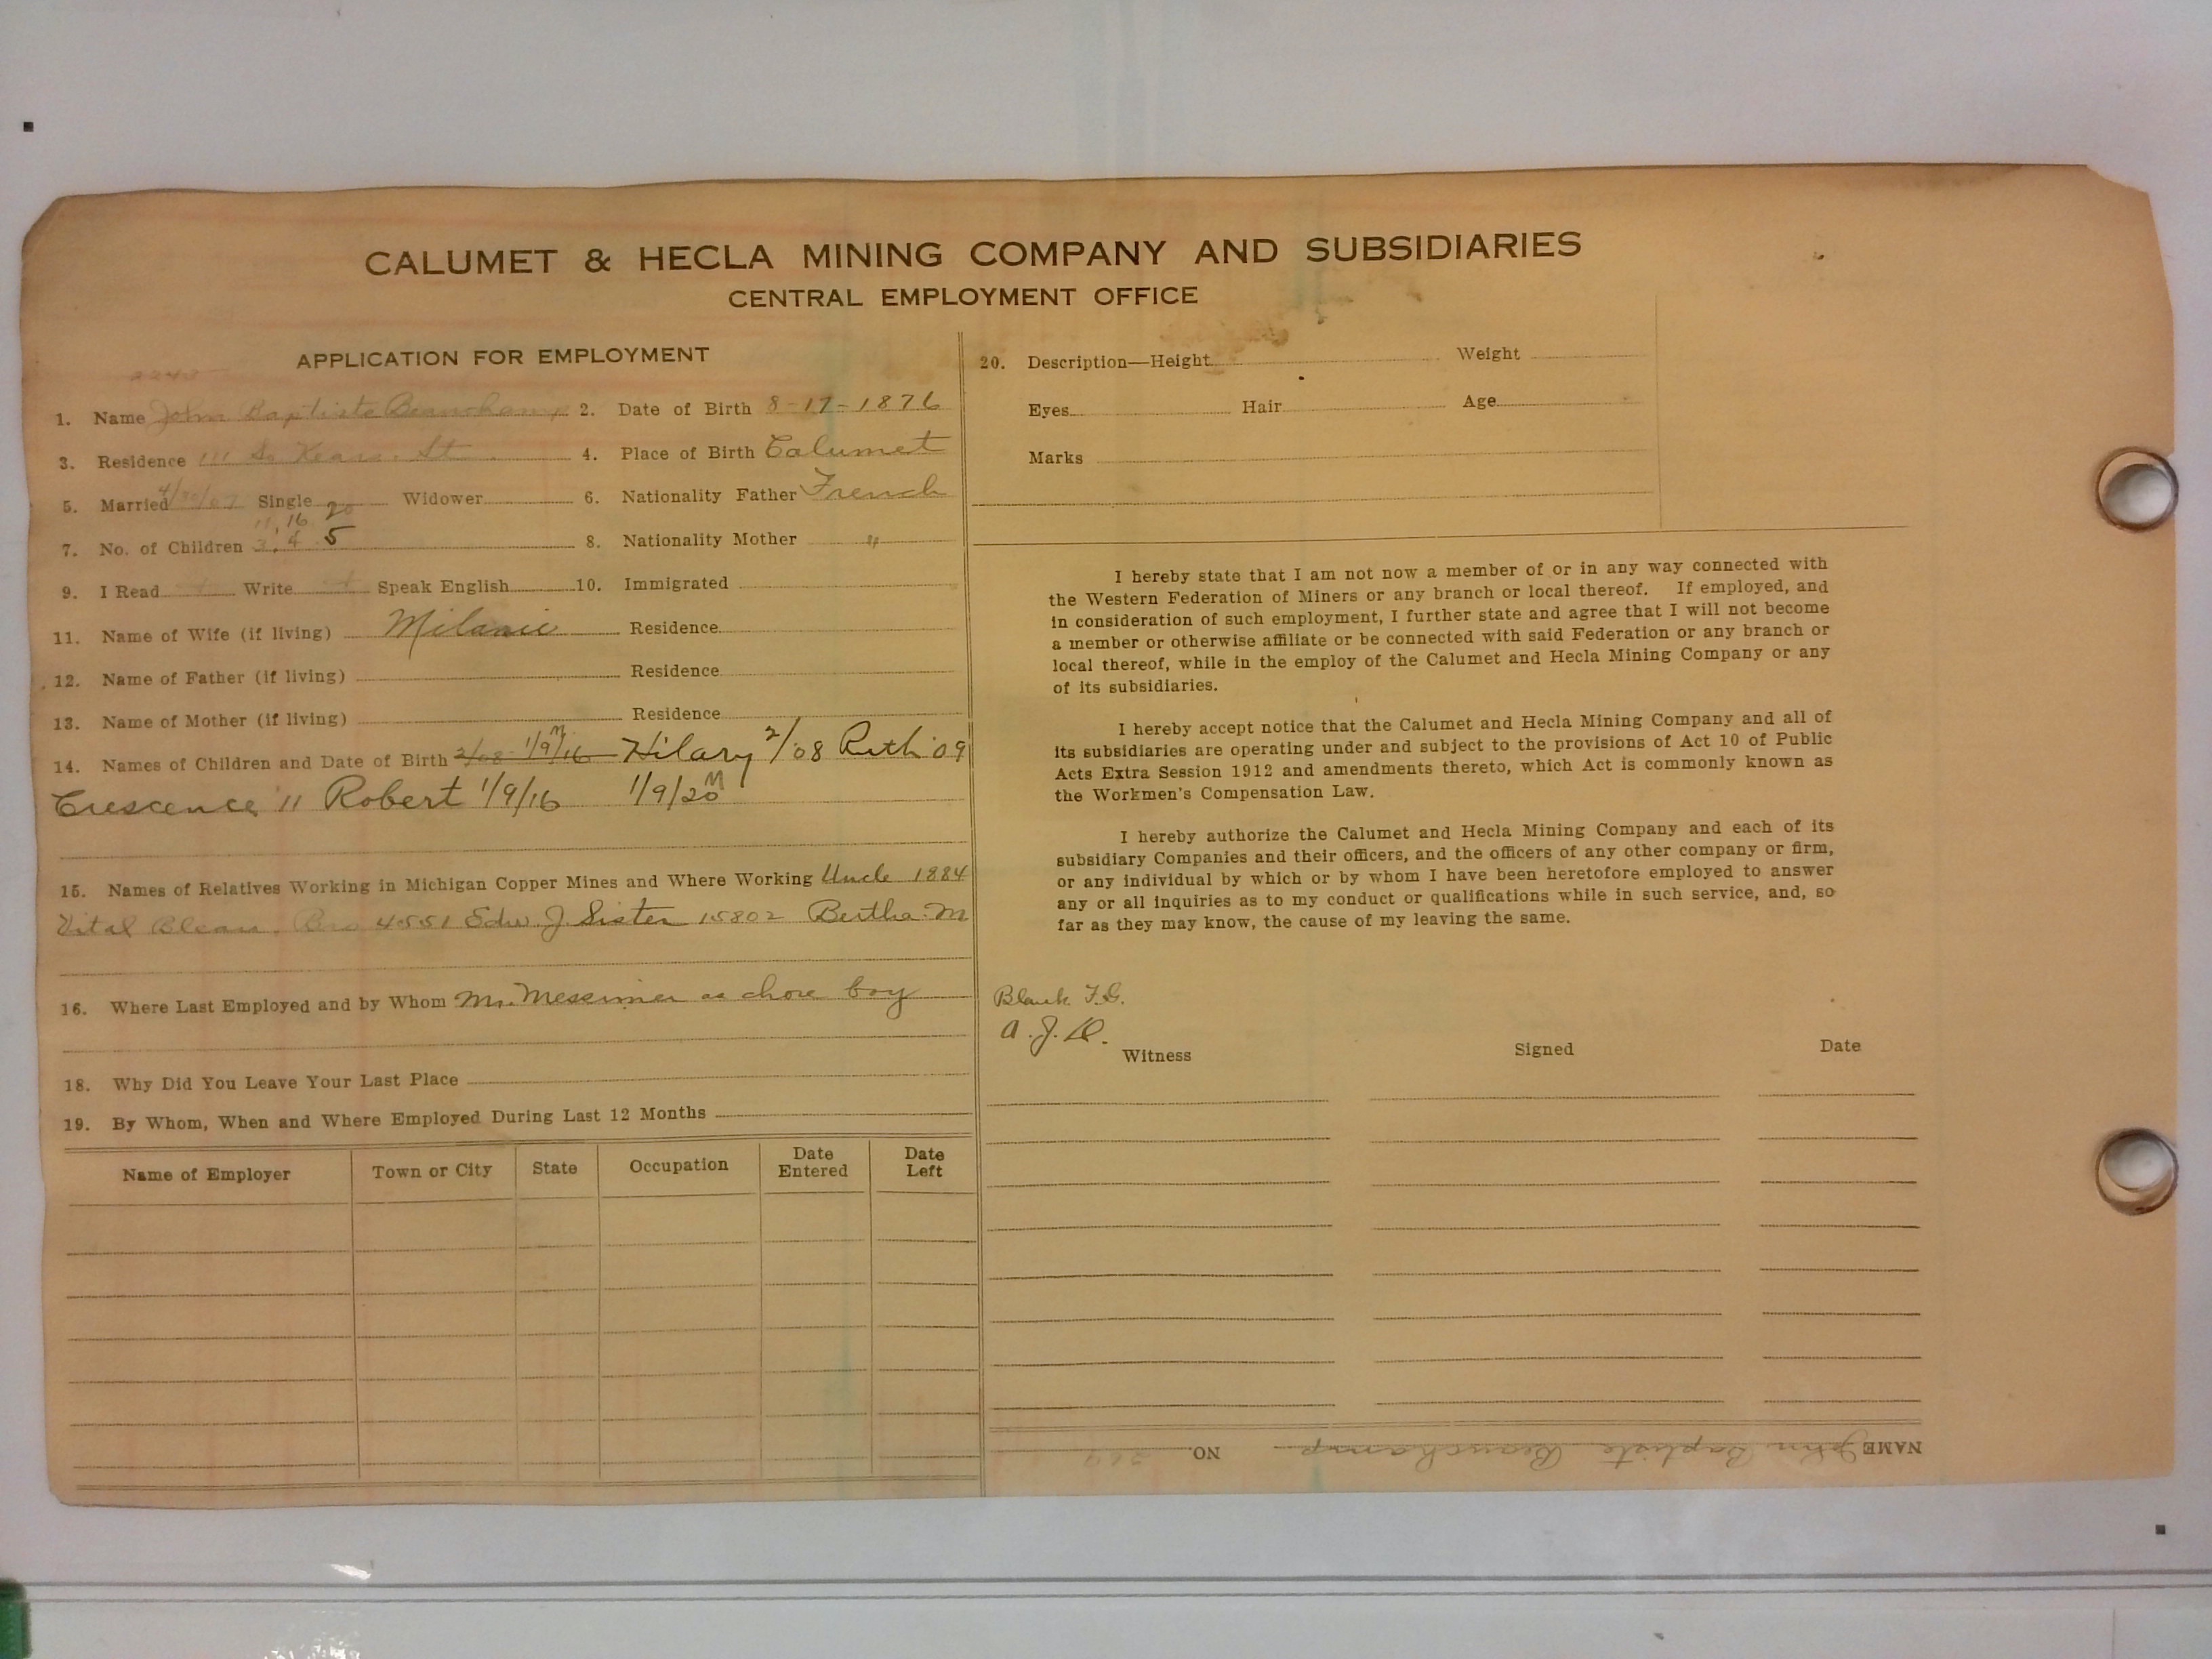 CALUMET & HECLA MINING COMPANY AND SUBSIDIARIES
CENTRAL EMPLOYMENT OFFICE
APPLICATION FOR EMPLOYMENT
1. Name John Baptiste Beauchamp 2. Date of Birth 8-17-1876
3. Residence 111 So Kears. St. 4. Place of Birth Calumet
5. Married 4/30/07 Single Widower 6. Nationality Father French
11, 16 20
7. No. of Children 3, 4 5 8. Nationality Mother "
9. I Read Write Speak English 10. Immigrated
11. Name of Wife (if living) Milanie Residence
12. Name of Father (if living) Residence
13. Name of Mother (if living) Residence
14. Names of Children and Date of Birth 2/08 - 1/9/16 M Hilary 2/08 Ruth '09
Crescence '11 Robert 1/9/16 1/9/20 M
15. Names of Relatives Working in Michigan Copper Mines and Where Working Uncle 1884
Vital Bro 4551 Edw. J. Sister 15802 Bertha M
16. Where Last Employed and by Whom Mr. Messimer as chore boy
18. Why Did You Leave Your Last Place
19. By Whom, When and Where Employed During Last 12 Months
Name of Employer Town or City State Occupation Date Entered Date Left
20. Description—Height Weight
Eyes Hair Age
Marks
I hereby state that I am not now a member of or in any way connected with
the Western Federation of Miners or any branch or local thereof. If employed, and
in consideration of such employment, I further state and agree that I will not become
a member or otherwise affiliate or be connected with said Federation or any branch or
local thereof, while in the employ of the Calumet and Hecla Mining Company or any
of its subsidiaries.
I hereby accept notice that the Calumet and Hecla Mining Company and all of
its subsidiaries are operating under and subject to the provisions of Act 10 of Public
Acts Extra Session 1912 and amendments thereto, which Act is commonly known as
the Workmen's Compensation Law.
I hereby authorize the Calumet and Hecla Mining Company and each of its
subsidiary Companies and their officers, and the officers of any other company or firm,
or any individual by which or by whom I have been heretofore employed to answer
any or all inquiries as to my conduct or qualifications while in such service, and, so
far as they may know, the cause of my leaving the same.
Blank F.G.
A. J. D.
Witness Signed Date
NAME John Baptiste Beauchamp NO. 269